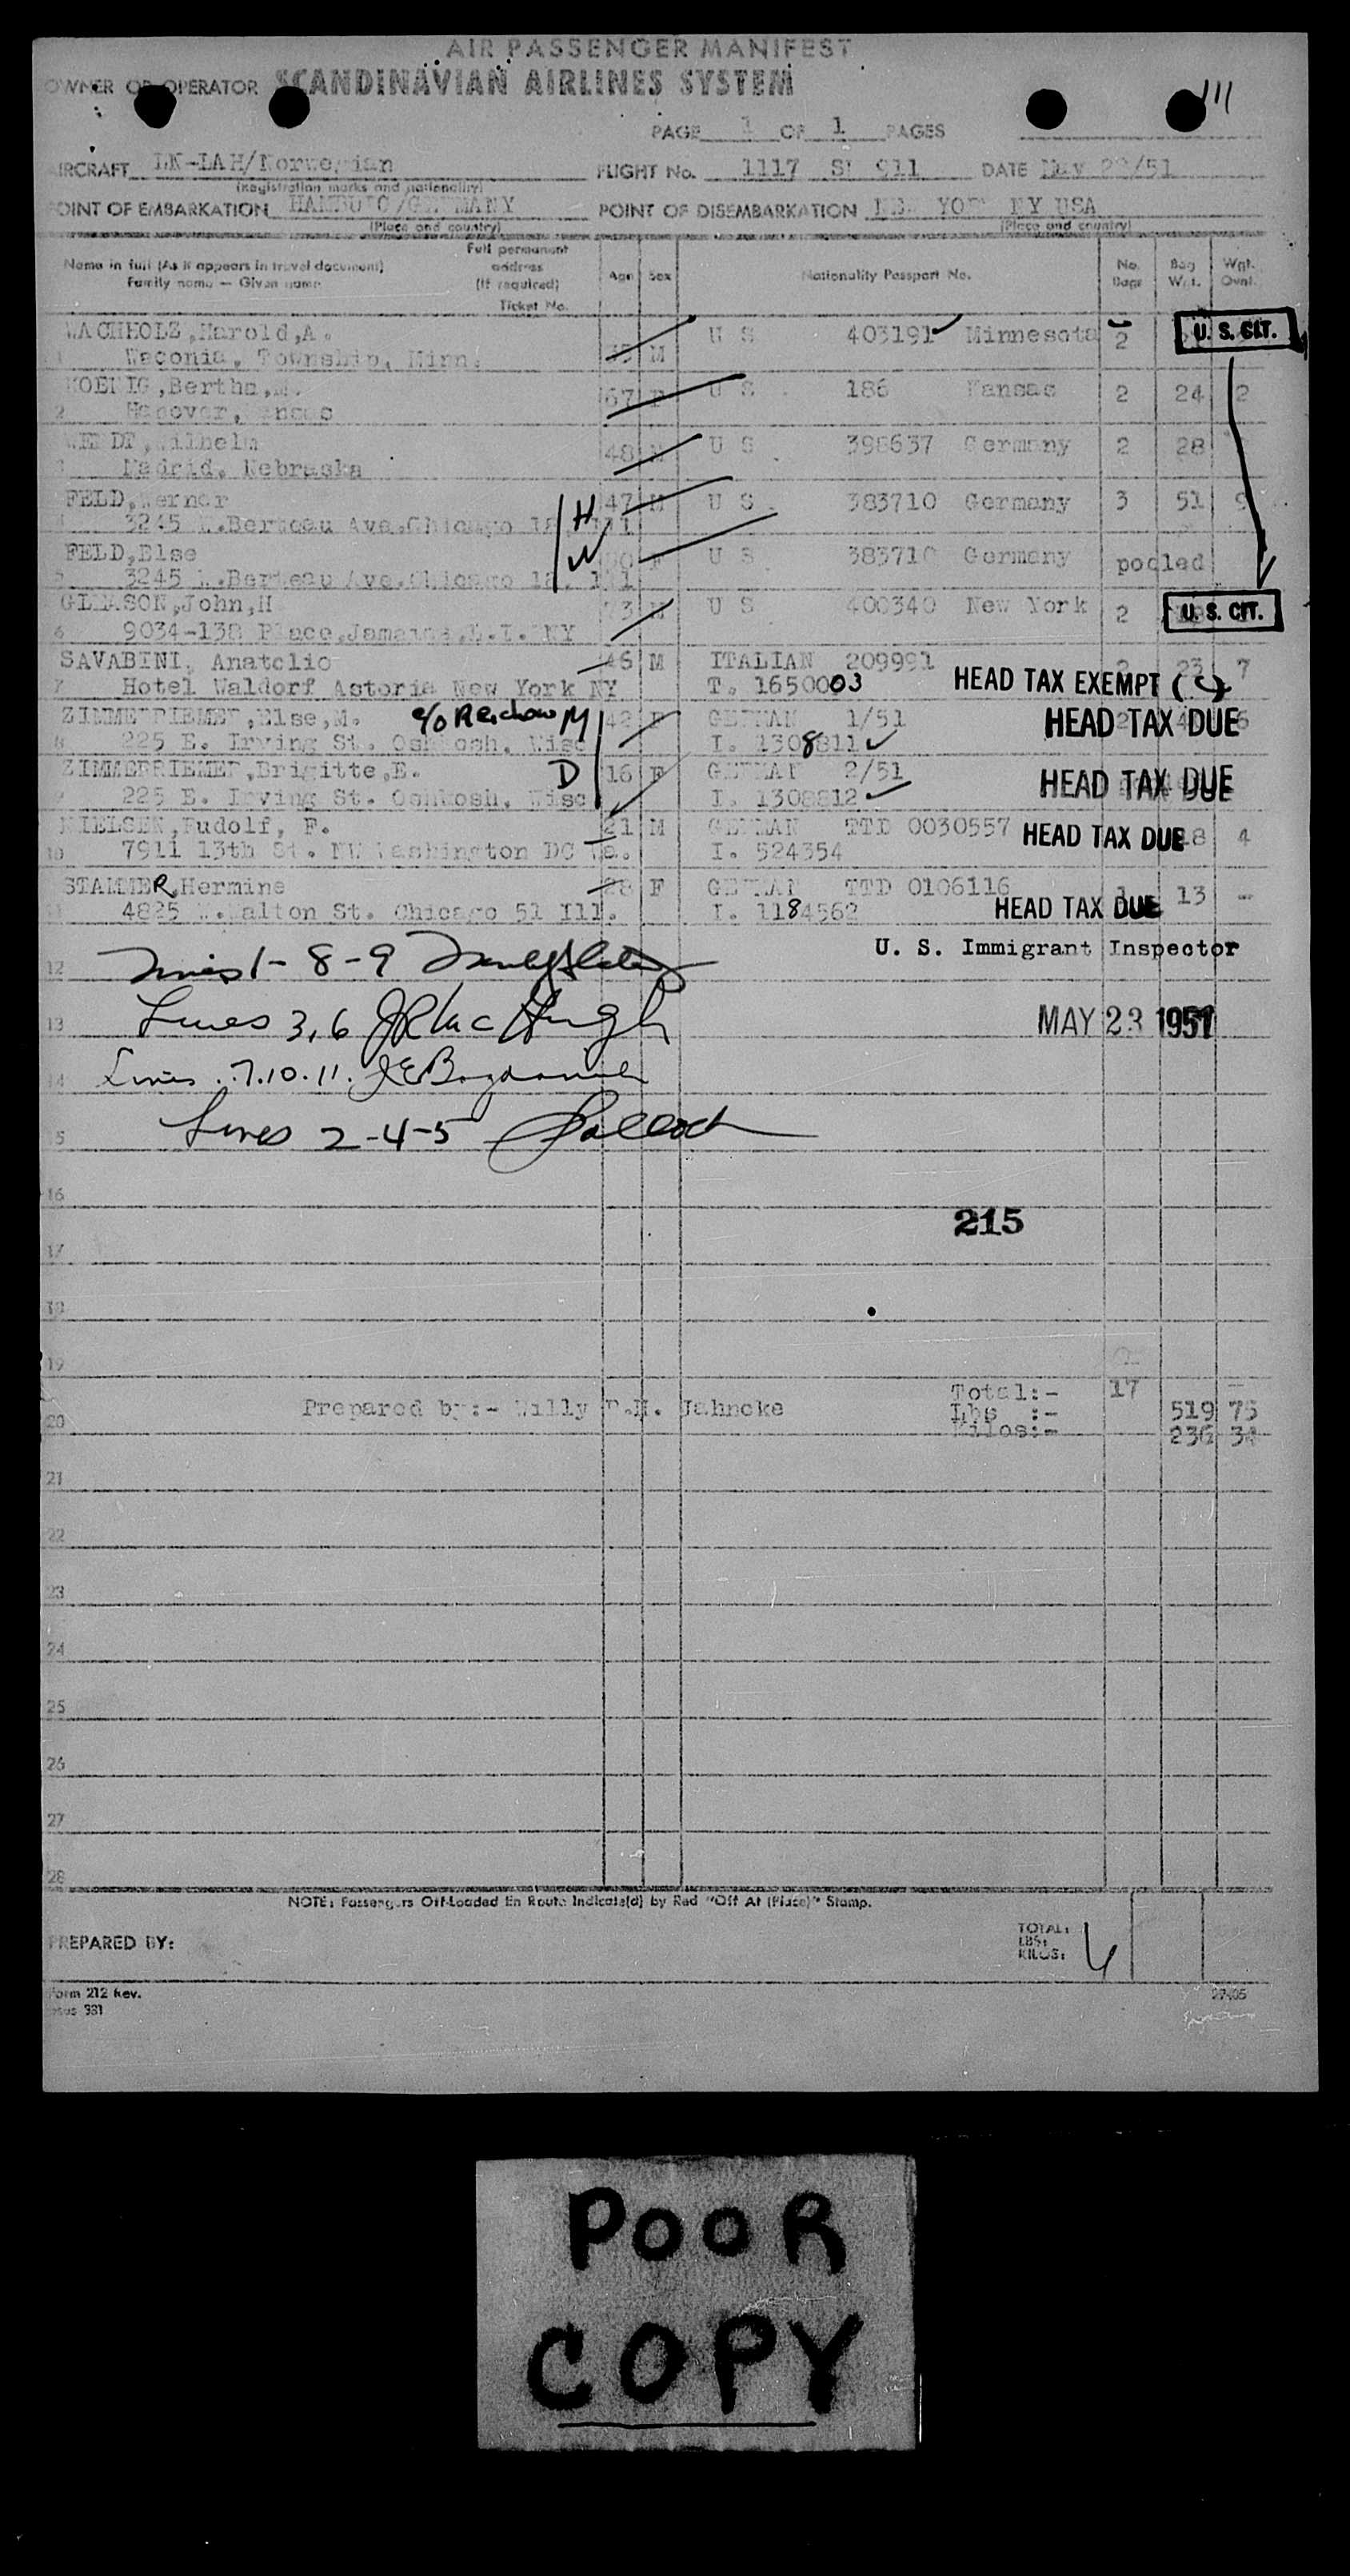 AIR PASSENGER MANIFEST
OWNER OR OPERATOR SCANDINAVIAN AIRLINES SYSTEM
111
PAGE 1 OF 1 PAGES
AIRCRAFT LN-LAH/Norwegian FLIGHT No. 1117 SK 911 DATE May 22/51
(Registration marks and nationality)
POINT OF EMBARKATION HAMBURG/GERMANY POINT OF DISEMBARKATION NEW YORK NY USA
(Place and country) (Place and country)
Name in full (As it appears in travel document) Full permanent address (If required) Age Sex Nationality Passport No. No. Bags Bag Wt. Wgt. Ovnt.
Family name — Given name Ticket No.
WACHHOLZ,Harold,A. U S 403191 Minnesota 2 U. S. CIT.
1 Waconia, Township, Minn. M
KOENIG,Bertha,M. 67 F U S 186 Kansas 2 24 2
2 Hanover, Kansas
WENDT,Wilhelm 48 M U S 398637 Germany 2 28
3 Madrid, Nebraska
FELD,Werner H 47 M U S 383710 Germany 3 51 9
4 3245 W.Berteau Ave.Chicago 18, Ill
FELD,Else W F U S 383710 Germany pooled
5 3245 W.Berteau Ave.Chicago 18, Ill
GLEASON,John,H 73 M U S 400340 New York 2 U. S. CIT.
6 9034-138 Place,Jamaica,L.I. NY
SAVABINI, Anatolio 46 M ITALIAN 209991 2 23 7
7 Hotel Waldorf Astoria New York NY T. 1650003 HEAD TAX EXEMPT (C)
ZIMMERRIEMER,Else,M. c/o Reichow M 42 F GERMAN 1/51 HEAD TAX DUE 6
8 225 E. Irving St. Oshkosh, Wisc I. 1308811
ZIMMERRIEMER,Brigitte,E. D 16 F GERMAN 2/51 HEAD TAX DUE
9 225 E. Irving St. Oshkosh, Wisc I. 1308812
NIELSEN,Rudolf, F. 21 M GERMAN TTD 0030557 HEAD TAX DUE 18 4
10 7911 13th St. NW Washington DC I. 524354
STAMMER,Hermine 28 F GERMAN TTD 0106116 13 —
11 4825 W.Walton St. Chicago 51 Ill. I. 1184562 HEAD TAX DUE
U. S. Immigrant Inspector
12 Lines 1-8-9
13 Lines 3,6 J R MacHugh MAY 23 1951
14 Lines 7.10.11.
15 Lines 2-4-5
16
215
17
18
19
Total:- 17
20 Prepared by:- Willy P.H. Jahncke Lbs :- 519 75
Kilos:- 236 34
21
22
23
24
25
26
27
28
NOTE: Passengers Off-Loaded En Route Indicate(d) by Red "Off At (Place)" Stamp.
PREPARED BY: TOTAL:
LBS:
KILOS:
Form 212 Rev.
POOR
COPY